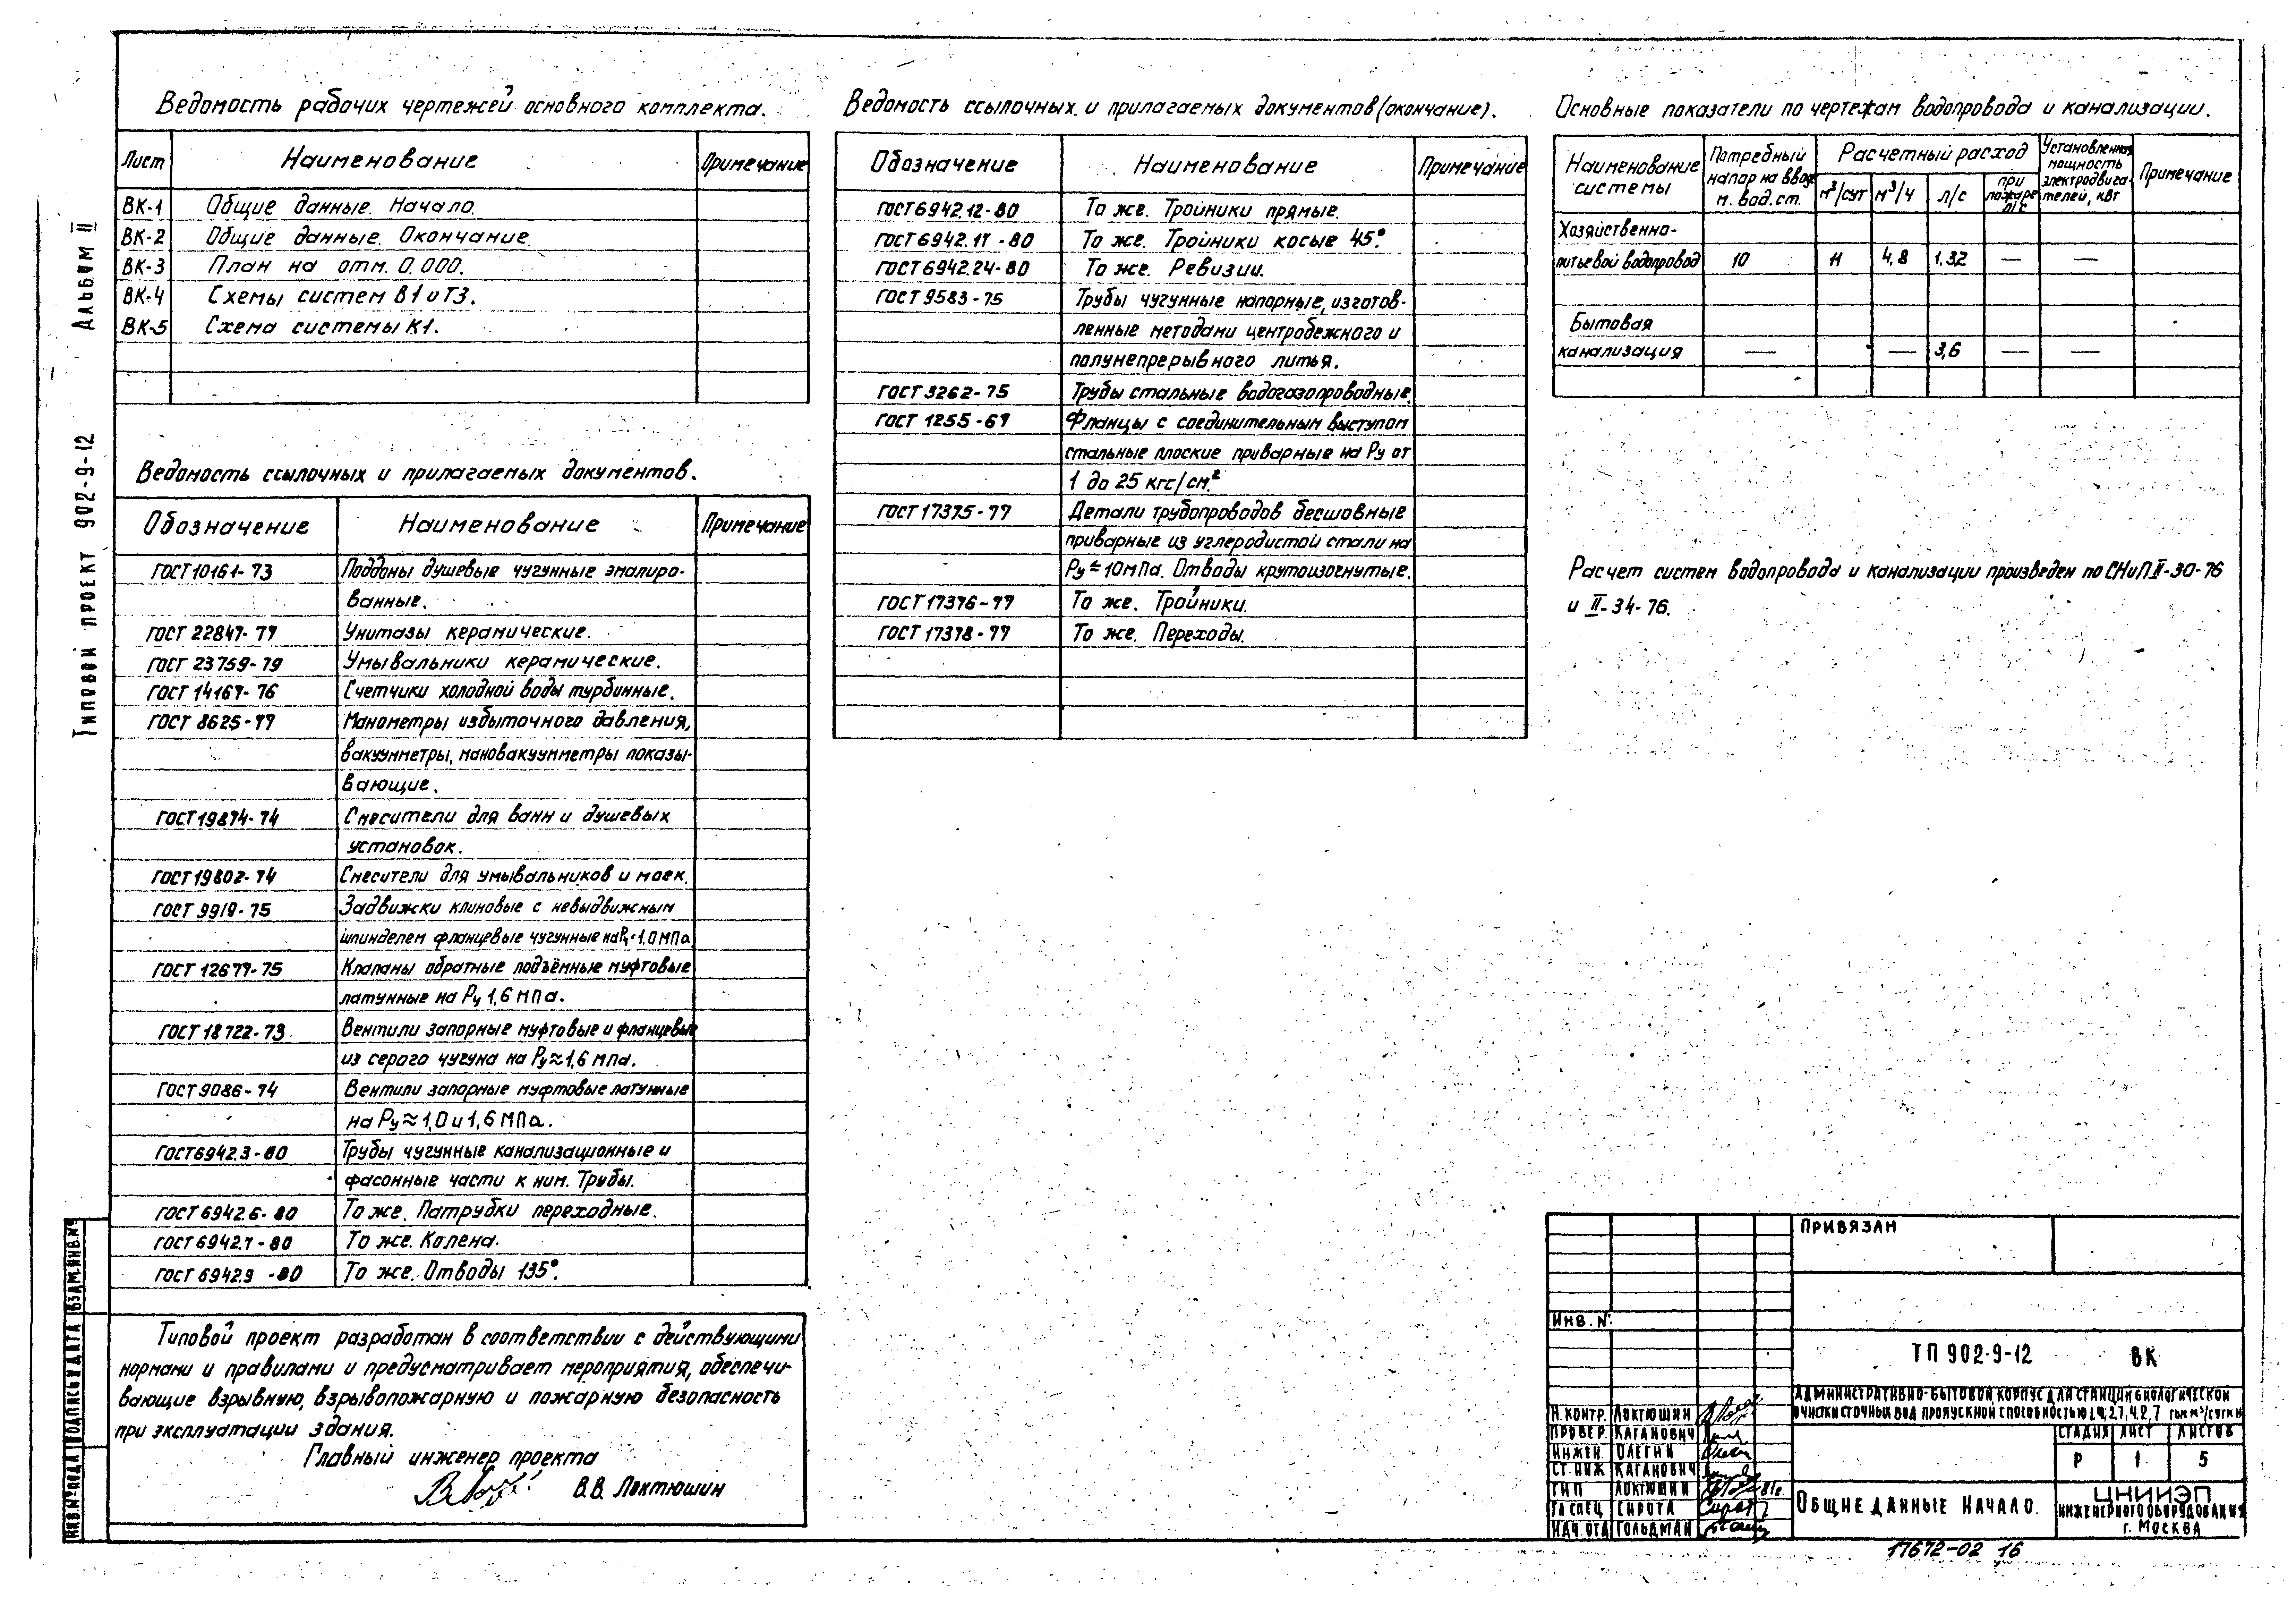 Альбом II
Типовой проект 902-9-12
Ведомость рабочих чертежей основного комплекта.
Лист Наименование Примечание
ВК-1 Общие данные. Начало.
ВК-2 Общие данные. Окончание.
ВК-3 План на отм. 0.000.
ВК-4 Схемы систем В1 и Т3.
ВК-5 Схема системы К1.
Ведомость ссылочных и прилагаемых документов.
Обозначение Наименование Примечание
ГОСТ 10161-73 Поддоны душевые чугунные эмалиро-
ванные.
ГОСТ 22847-77 Унитазы керамические.
ГОСТ 23759-79 Умывальники керамические.
ГОСТ 14167-76 Счетчики холодной воды турбинные.
ГОСТ 8625-77 Манометры избыточного давления,
вакуумметры, мановакуумметры показы-
вающие.
ГОСТ 19874-74 Смесители для ванн и душевых
установок.
ГОСТ 19802-74 Смесители для умывальников и моек.
ГОСТ 9919-75 Задвижки клиновые с невыдвижным
шпинделем фланцевые чугунные на Ру=1,0 МПа
ГОСТ 12677-75 Клапаны обратные подъёмные муфтовые
латунные на Ру 1,6 МПа.
ГОСТ 18722-73 Вентили запорные муфтовые и фланцевые
из серого чугуна на Ру≈1,6 МПа.
ГОСТ 9086-74 Вентили запорные муфтовые латунные
на Ру≈1,0 и 1,6 МПа.
ГОСТ 6942.3-80 Трубы чугунные канализационные и
фасонные части к ним. Трубы.
ГОСТ 6942.6-80 То же. Патрубки переходные.
ГОСТ 6942.7-80 То же. Колена.
ГОСТ 6942.9-80 То же. Отводы 135°.
Типовой проект разработан в соответствии с действующими
нормами и правилами и предусматривает мероприятия, обеспечи-
вающие взрывную, взрывопожарную и пожарную безопасность
при эксплуатации здания.
Главный инженер проекта
В.В. Локтюшин
Ведомость ссылочных и прилагаемых документов (окончание).
Обозначение Наименование Примечание
ГОСТ 6942.12-80 То же. Тройники прямые.
ГОСТ 6942.17-80 То же. Тройники косые 45°.
ГОСТ 6942.24-80 То же. Ревизии.
ГОСТ 9583-75 Трубы чугунные напорные, изготов-
ленные методами центробежного и
полунепрерывного литья.
ГОСТ 3262-75 Трубы стальные водогазопроводные.
ГОСТ 1255-67 Фланцы с соединительным выступом
стальные плоские приварные на Ру от
1 до 25 кгс/см.²
ГОСТ 17375-77 Детали трубопроводов бесшовные
приварные из углеродистой стали на
Ру≤10 МПа. Отводы крутоизогнутые.
ГОСТ 17376-77 То же. Тройники.
ГОСТ 17378-77 То же. Переходы.
Основные показатели по чертежам водопровода и канализации.
Наименование системы Потребный напор на вводе м. вод. ст. Расчетный расход Установленная мощность электродвига-телей, кВт Примечание
м³/сут м³/ч л/с при пожаре л/с
Хозяйственно-
питьевой водопровод 10 11 4,8 1.32 — —
Бытовая
канализация — — 3,6 — —
Расчет систем водопровода и канализации произведен по СНиП II-30-76
и II-34-76.
Привязан
Инв. №
ТП 902-9-12 ВК
Административно-бытовой корпус для станции биологической
очистки сточных вод пропускной способностью 1,4; 2,7; 4,2; 7 тыс м³/сутки
Н. контр. Локтюшин
Провер. Каганович
Инжен. Олегни
Ст. инж Каганович
ГИП Локтюшин
Гл спец Сирота
Нач. отд Гольдман
Стадия Лист Листов
Р 1 5
Общие данные Начало.
ЦНИИЭП
инженерного оборудования
г. Москва
Инв. № подл. Подпись и дата Взам. инв. №
17672-02 16